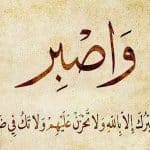 وَاصْبِر
إِلاَّ بِاللهِ وَلاَ تَحْزَنْ عَلَيْهِمْ وَلاَ تَكُ فِي